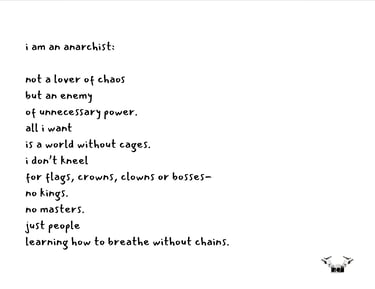 i am an anarchist:
not a lover of chaos
but an enemy
of unnecessary power.
all i want
is a world without cages.
i don't kneel
for flags, crowns, clowns or bosses—
no kings.
no masters.
just people
learning how to breathe without chains.